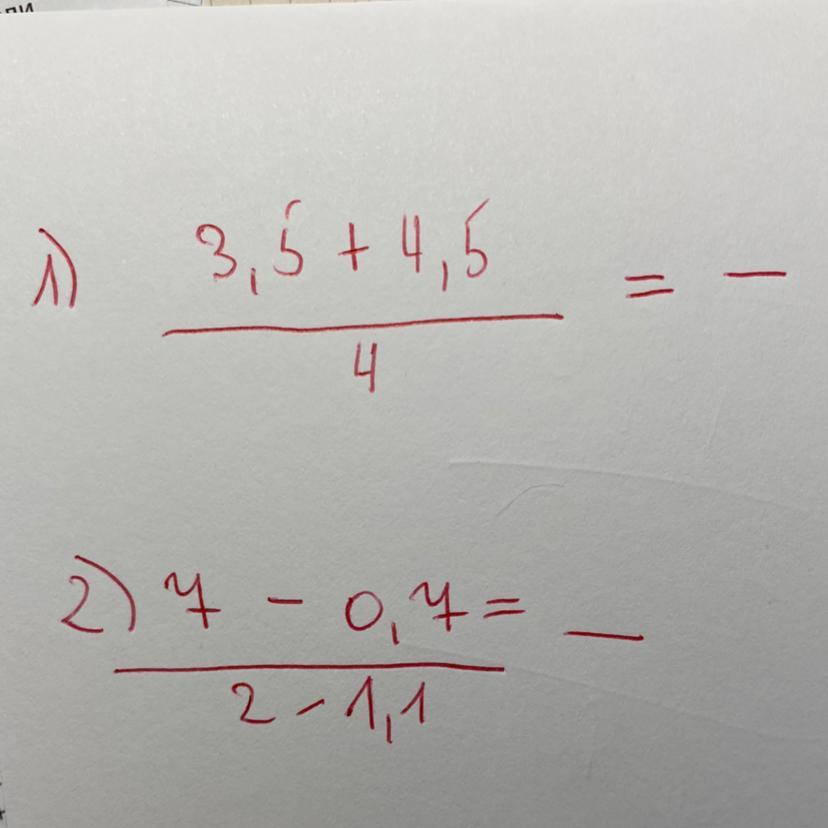 1) 3,5 + 4,5 = —
4
2) 7 - 0,7 = —
2 - 1,1